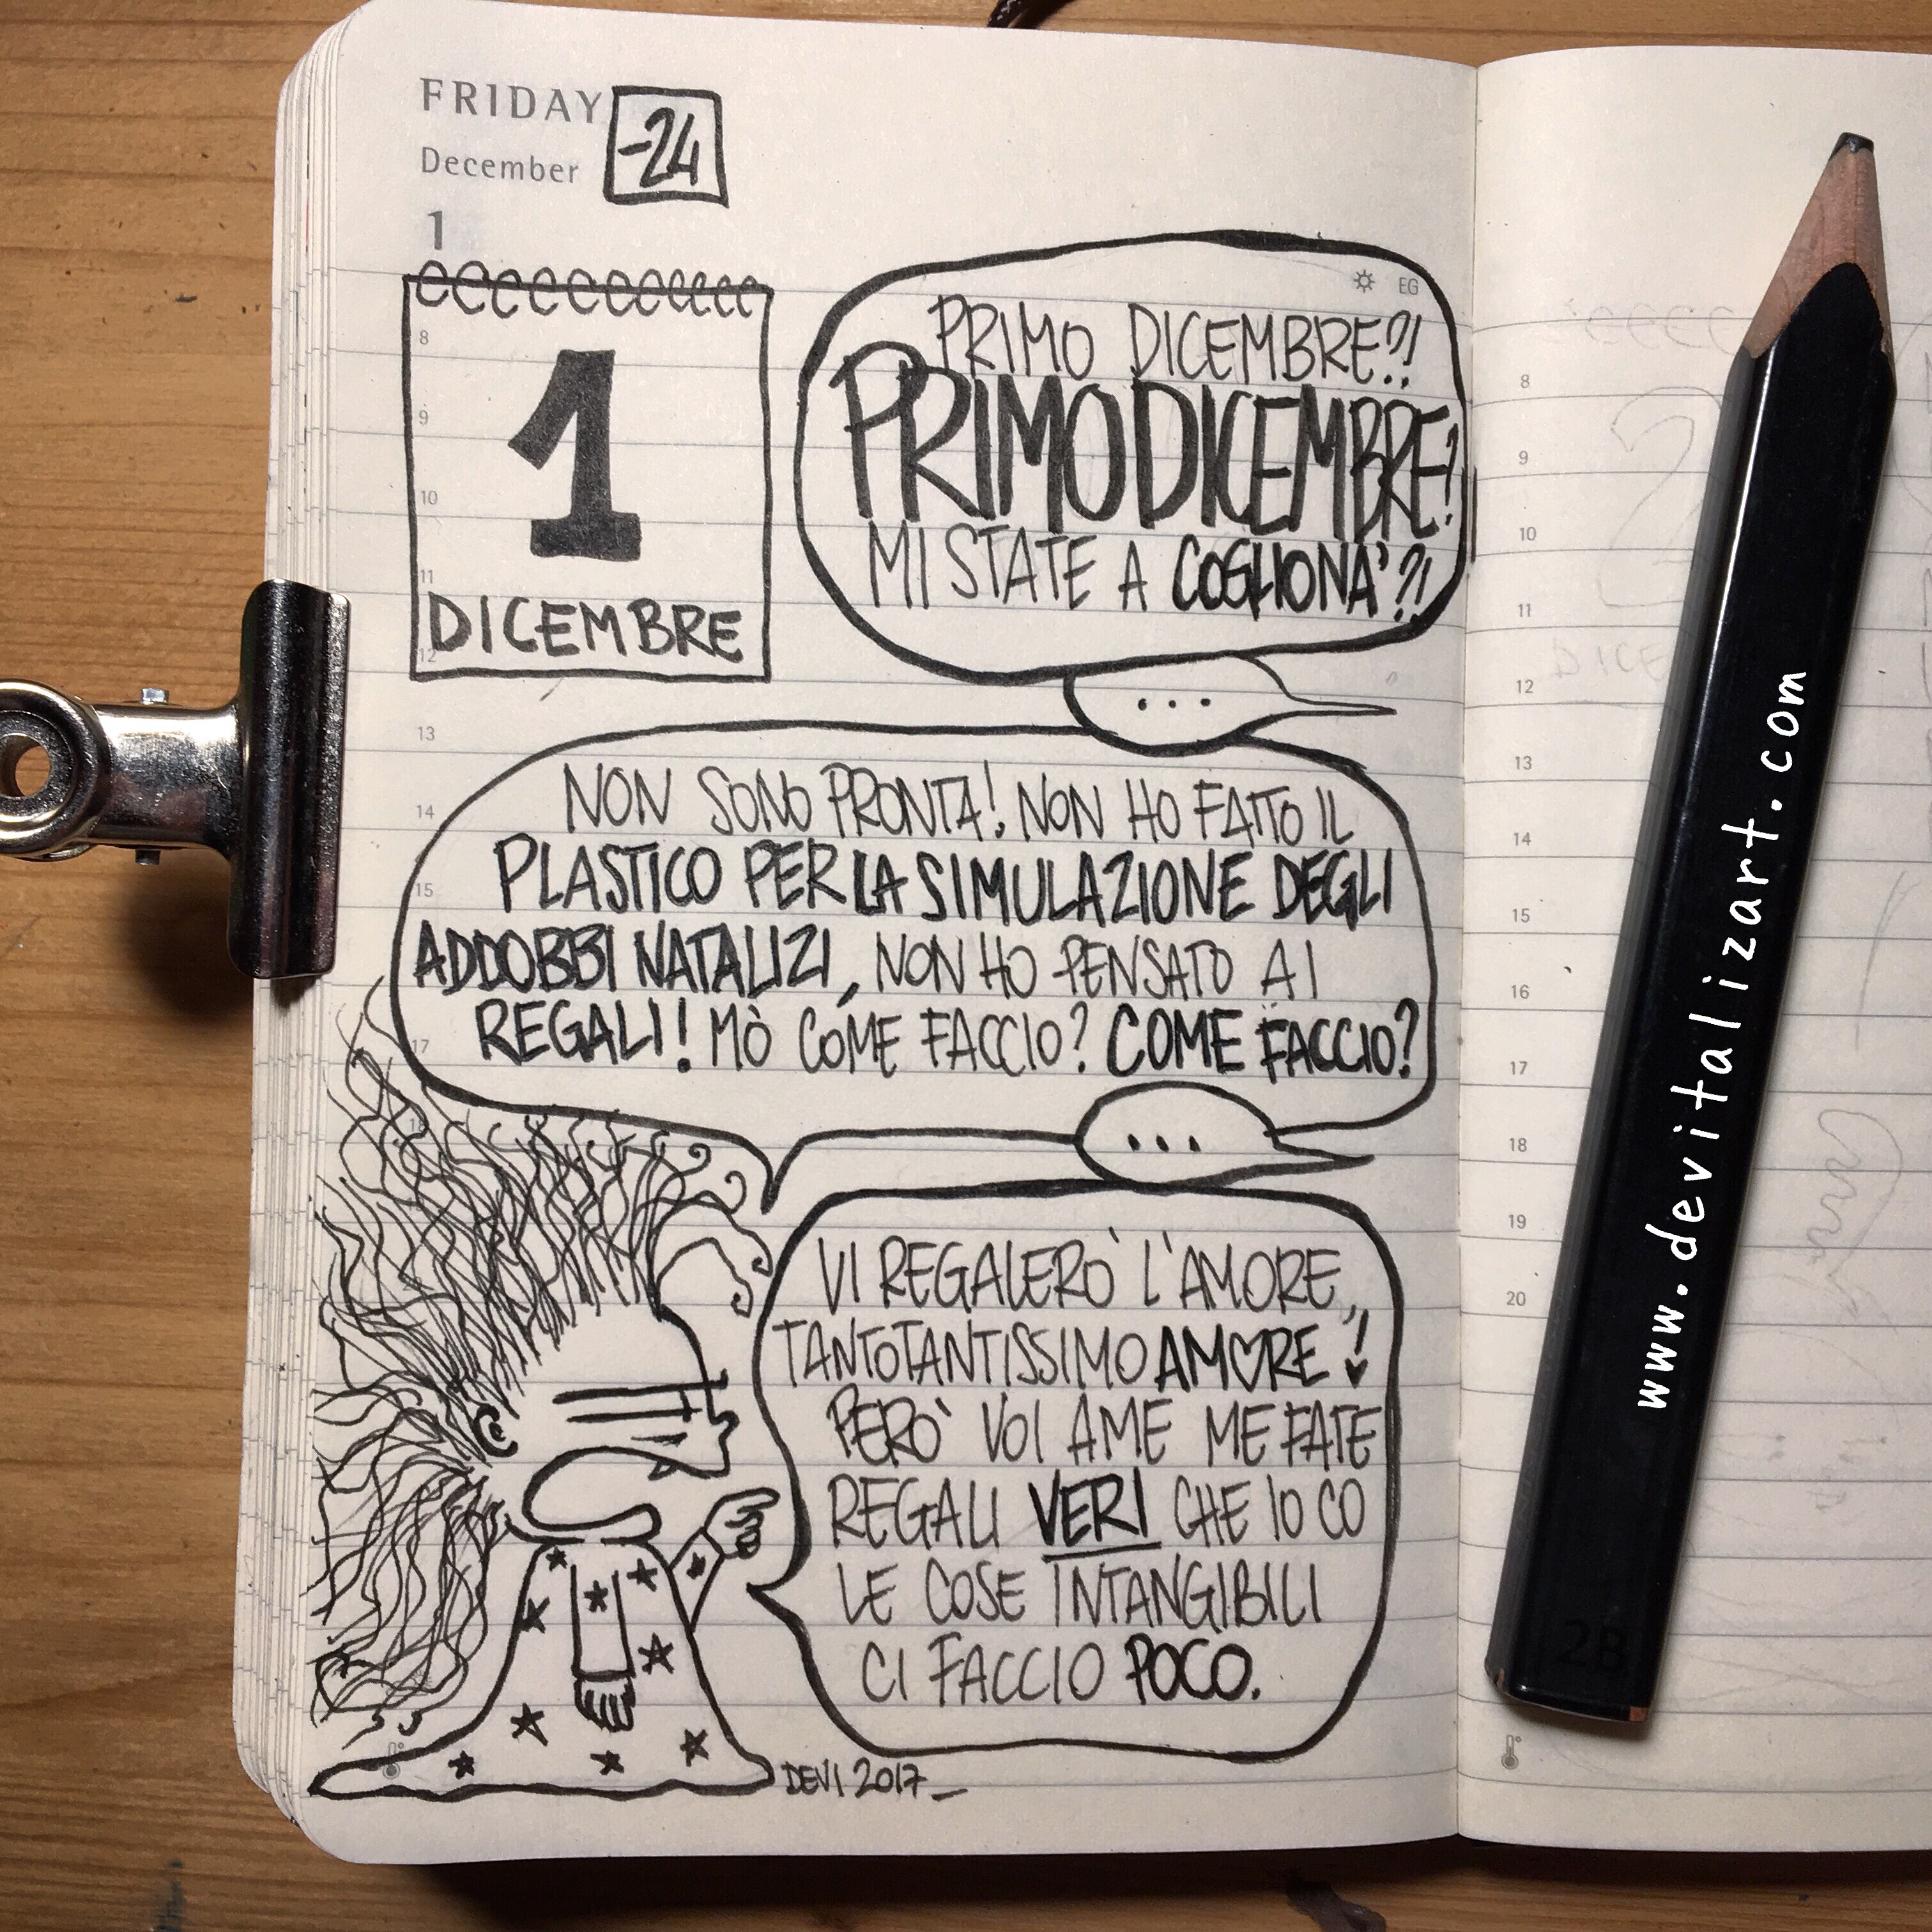 FRIDAY
-24
December
1
EG
8
9
10
11
12
1
DICEMBRE
PRIMO DICEMBRE?!
PRIMO DICEMBRE?
MI STATE A COGLIONA'?!
...
13
14
15
17
NON SONO PRONTA! NON HO FATTO IL
PLASTICO PER LA SIMULAZIONE DEGLI
ADDOBBI NATALIZI, NON HO PENSATO AI
REGALI! MÒ COME FACCIO? COME FACCIO?
...
VI REGALERÒ L'AMORE,
TANTOTANTISSIMO AMORE!
PERÒ VOI A ME ME FATE
REGALI VERI CHE IO CO
LE COSE INTANGIBILI
CI FACCIO POCO.
DEVI 2017_
8
9
10
11
12
13
14
15
16
17
18
19
20
DICE
www.devitalizart.com
2B